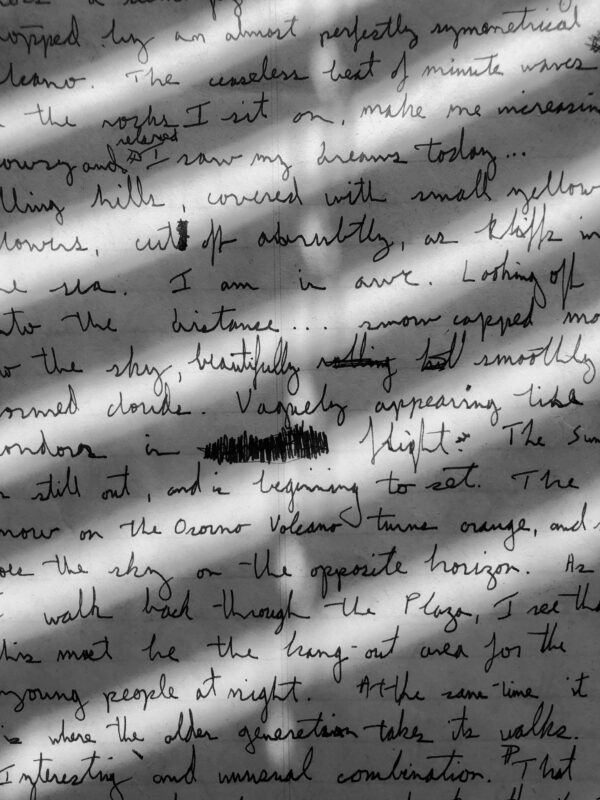 topped by an almost perfectly symmetrical
lcano. The ceaseless beat of minute waves
the rocks I sit on, make me increasin
relaxed
owsy and I saw my dreams today...
lling hills, covered with small yellow
lowers, cut off abrubtly, as kliffs in
he sea. I am in awe. Looking off
nto the distance... snow capped mo
o the sky, beautifully smoothly
ormed clouds. Vaguely appearing like
ondors in flight. The Sun
s still out, and is beginning to set. The
now on the Osorno Volcano turns orange, and s
oes the sky on the opposite horizon. As
I walk back through the Plaza, I see tha
his must be the hang-out area for the
young people at night. At the same-time it
is where the older generation takes its walks.
Interesting and unusual combination. That